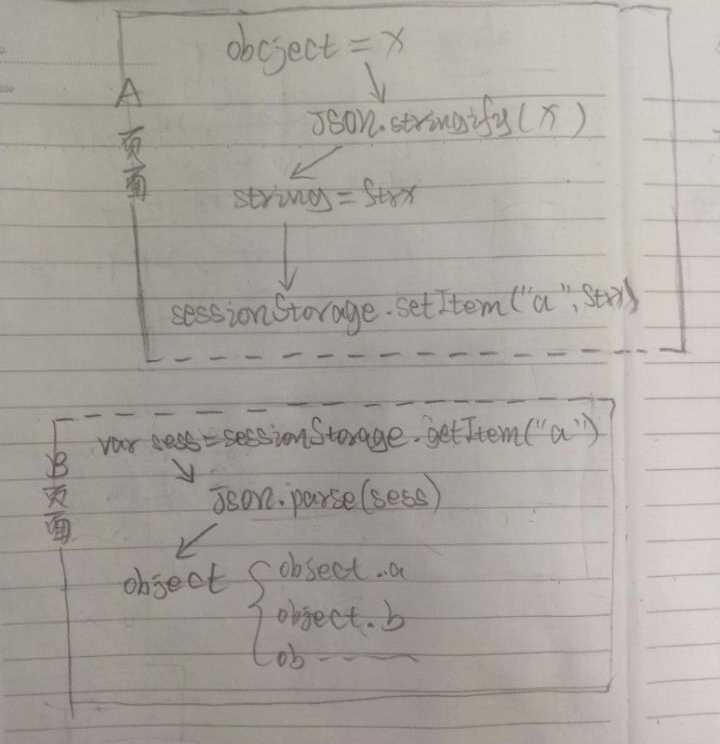 A页面
obcject = x
JSON.stringify(x)
string = Strx
sessionStorage.setItem("a", Strx)
B页面
var sess = sessionStorage.getItem("a")
Json.parse(sess)
object
obsect.a
object.b
ob